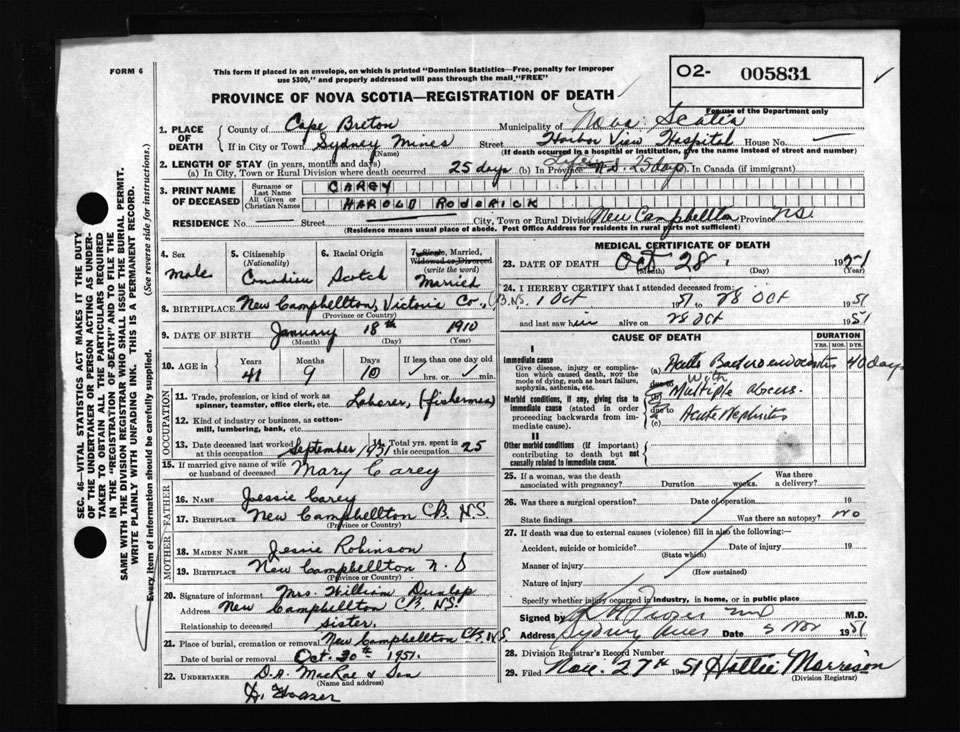 FORM 6
This form if placed in an envelope, on which is printed "Dominion Statistics—Free, penalty for improper
use $300," and properly addressed will pass through the mail "FREE"
O2- 005831
For use of the Department only
PROVINCE OF NOVA SCOTIA—REGISTRATION OF DEATH
SEC. 46—VITAL STATISTICS ACT MAKES IT THE DUTY
OF THE UNDERTAKER OR PERSON ACTING AS UNDER-
TAKER TO OBTAIN ALL THE PARTICULARS REQUIRED
IN THE "REGISTRATION OF DEATH" AND TO FILE THE
SAME WITH THE DIVISION REGISTRAR WHO SHALL ISSUE THE BURIAL PERMIT.
WRITE PLAINLY WITH UNFADING INK. THIS IS A PERMANENT RECORD.
Every item of information should be carefully supplied. (See reverse side for instructions.)
1. PLACE OF DEATH
County of Cape Breton Municipality of Nova Scotia
If in City or Town Sydney Mines Street Harbor View Hospital House No. —
(Name) (If death occurred in a hospital or institution, give the name instead of street and number)
2. LENGTH OF STAY (in years, months and days)
(a) In City, Town or Rural Division where death occurred 25 days (b) In Province Life N.S. 25 days. In Canada (if immigrant)
3. PRINT NAME OF DECEASED
Surname or Last Name CAREY
All Given or Christian Names HAROLD RODERICK
RESIDENCE No. Street City, Town or Rural Division New Campbellton Province N.S.
(Residence means usual place of abode. Post Office Address for residents in rural parts not sufficient)
4. Sex Male
5. Citizenship (Nationality) Canadian
6. Racial Origin Scotch
7. Single, Married, Widowed or Divorced (write the word) Married
8. BIRTHPLACE New Campbellton, Victoria Co., C.B. N.S.
(Province or Country)
9. DATE OF BIRTH January 18th 1910
(Month) (Day) (Year)
10. AGE in Years 41 Months 9 Days 10 If less than one day old hrs. or min.
OCCUPATION
11. Trade, profession, or kind of work as
spinner, teamster, office clerk, etc. Laborer, (fisherman)
12. Kind of industry or business, as cotton
mill, lumbering, bank, etc.
13. Date deceased last worked at this occupation September 1931 Total yrs. spent in this occupation 25
15. If married give name of wife or husband of deceased Mary Carey
FATHER
16. NAME Jessie Carey
17. BIRTHPLACE New Campbellton C.B. N.S.
(Province or Country)
MOTHER
18. MAIDEN NAME Jessie Robinson
19. BIRTHPLACE New Campbellton N.S
(Province or Country)
20. Signature of informant Mrs. William Dunlap
Address New Campbellton C.B. N.S.
Relationship to deceased sister,
21. Place of burial, cremation or removal New Campbellton C.B. N.S.
Date of burial or removal Oct. 30th 1951.
22. UNDERTAKER D.A. MacRae & Son
(Name and address)
MEDICAL CERTIFICATE OF DEATH
23. DATE OF DEATH Oct 28, 1951
(Month) (Day) (Year)
24. I HEREBY CERTIFY that I attended deceased from:
1 Oct 1951 to 28 Oct 1951
and last saw him alive on 28 Oct 1951
CAUSE OF DEATH DURATION
YRS. MOS. DYS.
I
Immediate cause
Give disease, injury or complication which caused death, not the mode of dying, such as heart failure, asphyxia, asthenia, etc.
(a) Acute Bact endocarditis 40 days
due to With
(b) Multiple abscess.
Morbid conditions, if any, giving rise to immediate cause (stated in order proceeding backwards from immediate cause).
due to
(c) Acute Nephritis
II
Other morbid conditions (if important) contributing to death but not causally related to immediate cause.
25. If a woman, was the death associated with pregnancy? Duration weeks. Was there a delivery?
26. Was there a surgical operation? Date of operation 19
State findings Was there an autopsy? No
27. If death was due to external causes (violence) fill in also the following:—
Accident, suicide or homicide? Date of injury 19
(State which)
Manner of injury
(How sustained)
Nature of injury
Specify whether injury occurred in industry, in home, or in public place
Signed by M.D.
Address Sydney Mines Date 5 Nov 1951
28. Division Registrar's Record Number
29. Filed Nov. 27th 1951 Hattie Morrison
(Division Registrar)